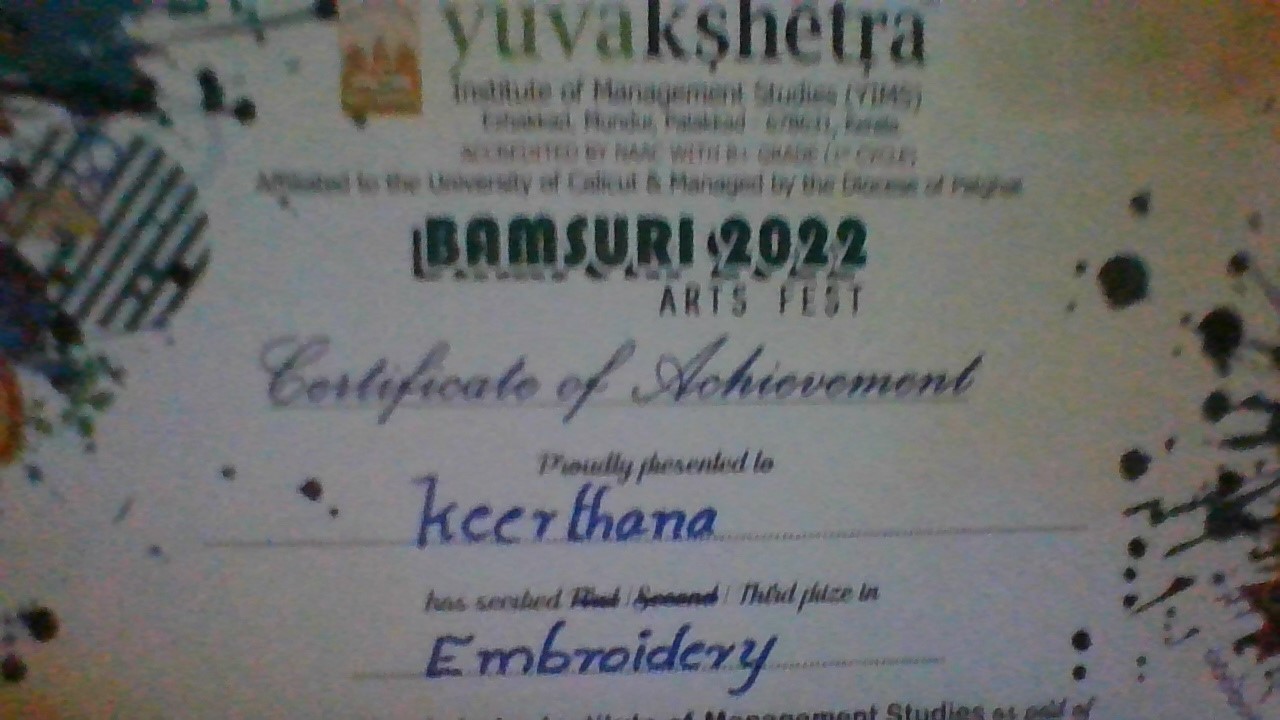 yuvakshetra
Institute of Management Studies (YIMS)
Ezhakkad, Mundur, Palakkad - 678631, Kerala
ACCREDITED BY NAAC WITH B+ GRADE (1st CYCLE)
Affiliated to the University of Calicut & Managed by the Diocese of Palghat
BAMSURI 2022
ARTS FEST
Certificate of Achievement
Proudly presented to
Keerthana
has secured First / Second / Third prize in
Embroidery
Institute of Management Studies as part of